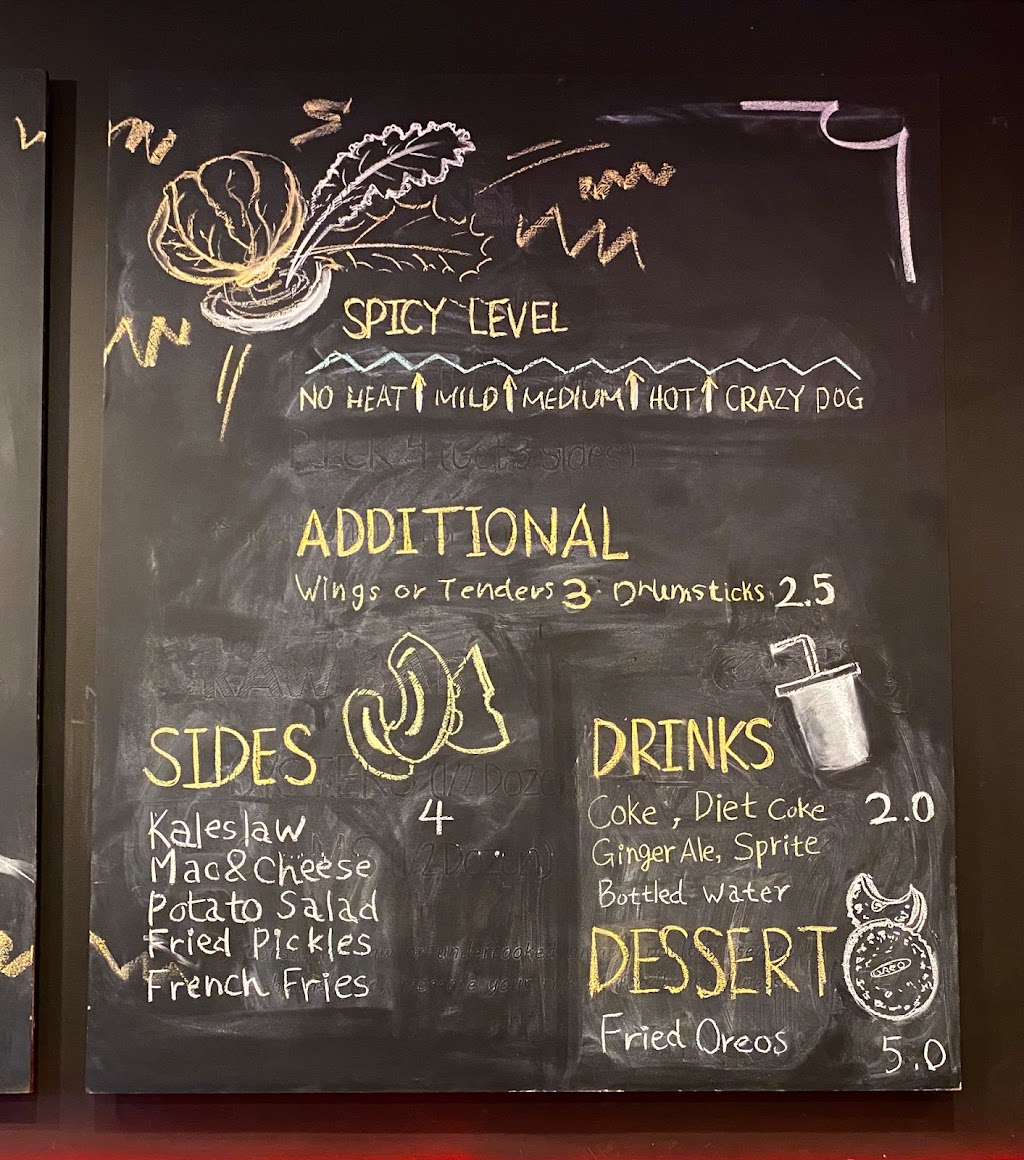 SPICY LEVEL
NO HEAT ↑ MILD ↑ MEDIUM ↑ HOT ↑ CRAZY DOG
PICK 4 (Get 3 sides)
ADDITIONAL
Wings or Tenders 3 Drumsticks 2.5
RAW
SIDES
(1/2 Doze
4
Kaleslaw
Mac&Cheese
Potato Salad
Fried Pickles
French Fries
DRINKS
Coke, Diet Coke 2.0
Ginger Ale, Sprite
Bottled water
DESSERT
OREO
Fried Oreos
5.0